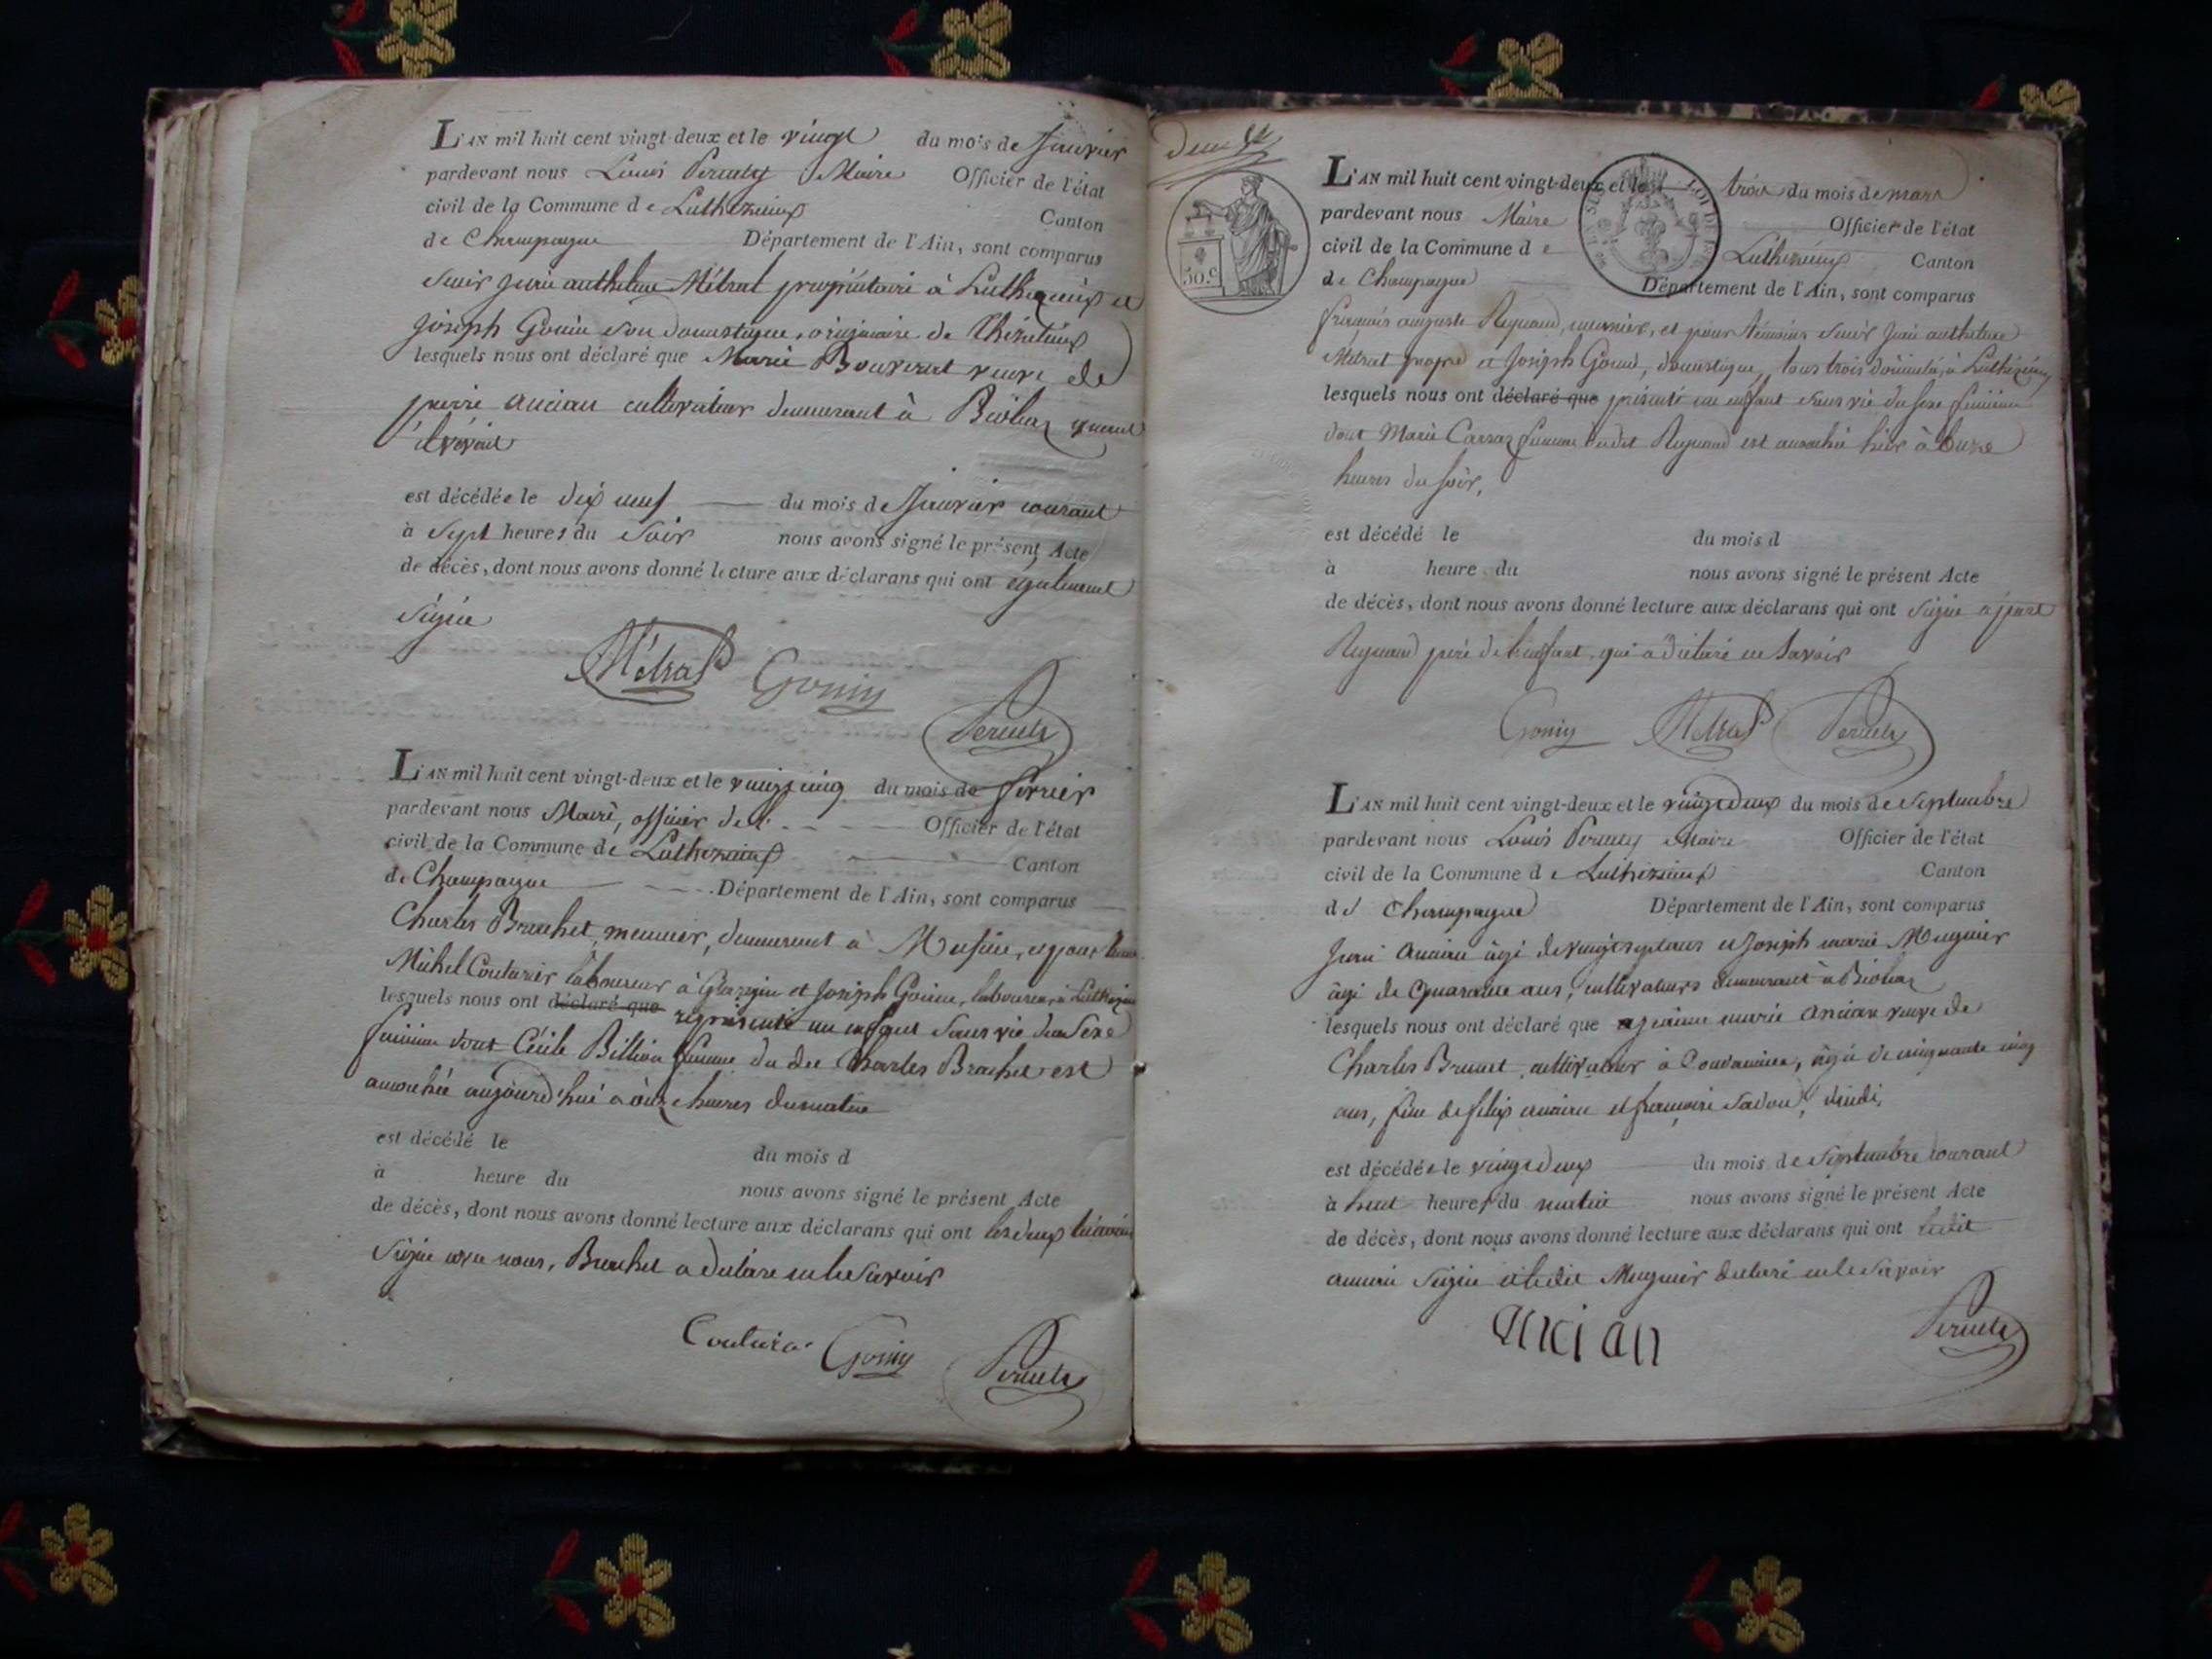 L'AN mil huit cent vingt-deux et le vingt du mois de Janvier
pardevant nous Louis Maire Officier de l'état
civil de la Commune de Luthezieux Canton
de Champagne Département de l'Ain, sont comparus
Métral propriétaire à Luthezieux et
Joseph Gonin son domestique, originaire de
lesquels nous ont déclaré que Marie Bouverat veuve de
pierre ancian cultivateur demeurant à Biolaz quand
il vivait
est décédée le dix neuf du mois de Janvier courant
à Sept heures du Soir nous avons signé le présent Acte
de décès, dont nous avons donné lecture aux déclarans qui ont également
signé
Métral Gonin
L'AN mil huit cent vingt-deux et le vingt cinq du mois de fevrier
pardevant nous Maire, officier de l' Officier de l'état
civil de la Commune de Luthezieux Canton
de Champagne Département de l'Ain, sont comparus
Charles Brachet, meunier, demeurant à et pour
Michel Couturier laboureur à et Joseph Gonin, laboureur, à
lesquels nous ont déclaré que représenté un enfant Sans vie du Sexe
feminin dont Cécile Billion femme du dit Charles Brachet est
accouchée aujourd'hui à onze heures du matin
est décédé le du mois d
à heure du nous avons signé le présent Acte
de décès, dont nous avons donné lecture aux déclarans qui ont les deux témoins
Signé avec nous, Brachet a déclaré ne le Savoir
Gonin
deux
50.c
L'AN mil huit cent vingt-deux et le trois du mois de mars
pardevant nous Maire Officier de l'état
civil de la Commune de Luthezieux Canton
de Champagne Département de l'Ain, sont comparus
françois auguste Reynaud, meunier, et pour témoins
Métral propre et Joseph Gonin, domestique, tous trois à Luthezieux
lesquels nous ont déclaré que présenté un enfant sans vie du sexe feminin
dont Marie Carraz femme dudit Reynaud est accouchée hier à onze
heures du soir,
est décédé le du mois d
à heure du nous avons signé le présent Acte
de décès, dont nous avons donné lecture aux déclarans qui ont signé à part
Reynaud père de l'enfant qui a déclaré ne savoir
Gonin Métral
L'AN mil huit cent vingt-deux et le vingt deux du mois de Septembre
pardevant nous Louis Maire Officier de l'état
civil de la Commune de Luthezieux Canton
de Champagne Département de l'Ain, sont comparus
ancian âgé de vingt sept ans et Joseph marie Mugnier
âgé de quarante ans, cultivateurs demeurant à Biolaz
lesquels nous ont déclaré que jeanne marie ancian veuve de
Charles Brunet cultivateur à âgée de cinquante cinq
ans, fille de felix ancian et françoise
est décédée le vingt deux du mois de Septembre courant
à huit heures du matin nous avons signé le présent Acte
de décès, dont nous avons donné lecture aux déclarans qui ont ledit
ancian signé et ledit Mugnier déclaré ne le Savoir
ancian